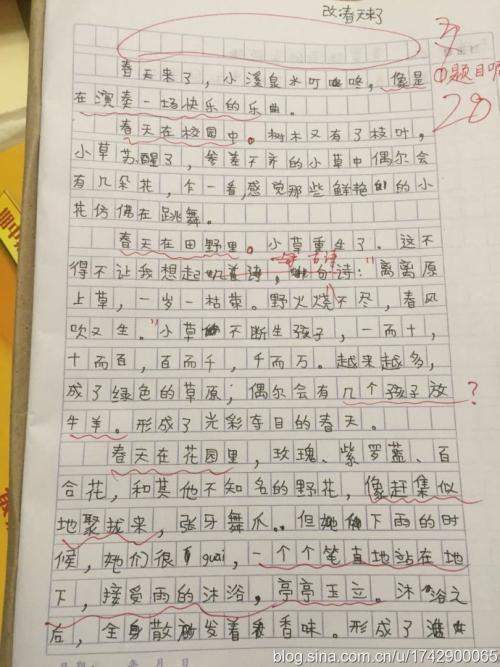 改:春天来了
①题目呢
28
春天来了，小溪泉水叮咚咚，像是
在演奏一场快乐的乐曲。
春天在校园中。树木又有了枝叶，
小草苏醒了，参差不齐的小草中偶尔会
有几朵花，乍一看，感觉那些鲜艳的小
花仿佛在跳舞。
春天在田野里。小草重生了。这不
得不让我想起 一首古诗 诗："离离原
上草，一岁一枯荣。野火烧不尽，春风
吹又生。"小草不断生孩子，一而十，
十而百，百而千，千而万。越来越多，
成了绿色的草原；偶尔会有几个孩子放
牛羊。形成了光彩夺目的春天。
？
春天在花园里，玫瑰、紫罗蓝、百
合花，和其他不知名的野花，像赶集似
地聚拢来，张牙舞爪。但她们下雨的时
候，她们很guai，一个个笔直地站在地
下，接受雨的沐浴，亭亭玉立。沐浴之
后，全身散发着香味。形成了
blog.sina.com.cn/u/1742900065